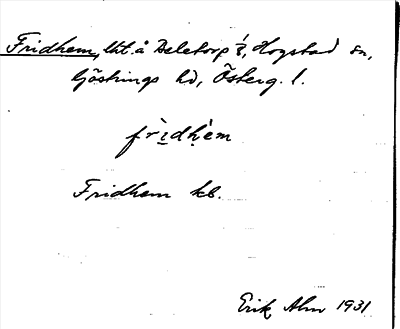 Fridhem, lht. å Deletorp 1/8, Hogstad sn,
Göstrings hd, Österg. l.
frìdhem
Fridhem kb.
Erik Alm 1931